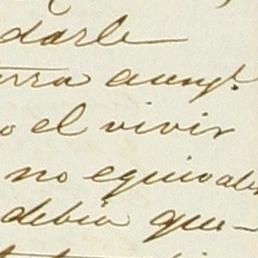 darle
rra aunq.
o el vivir
no equivale
debia que-